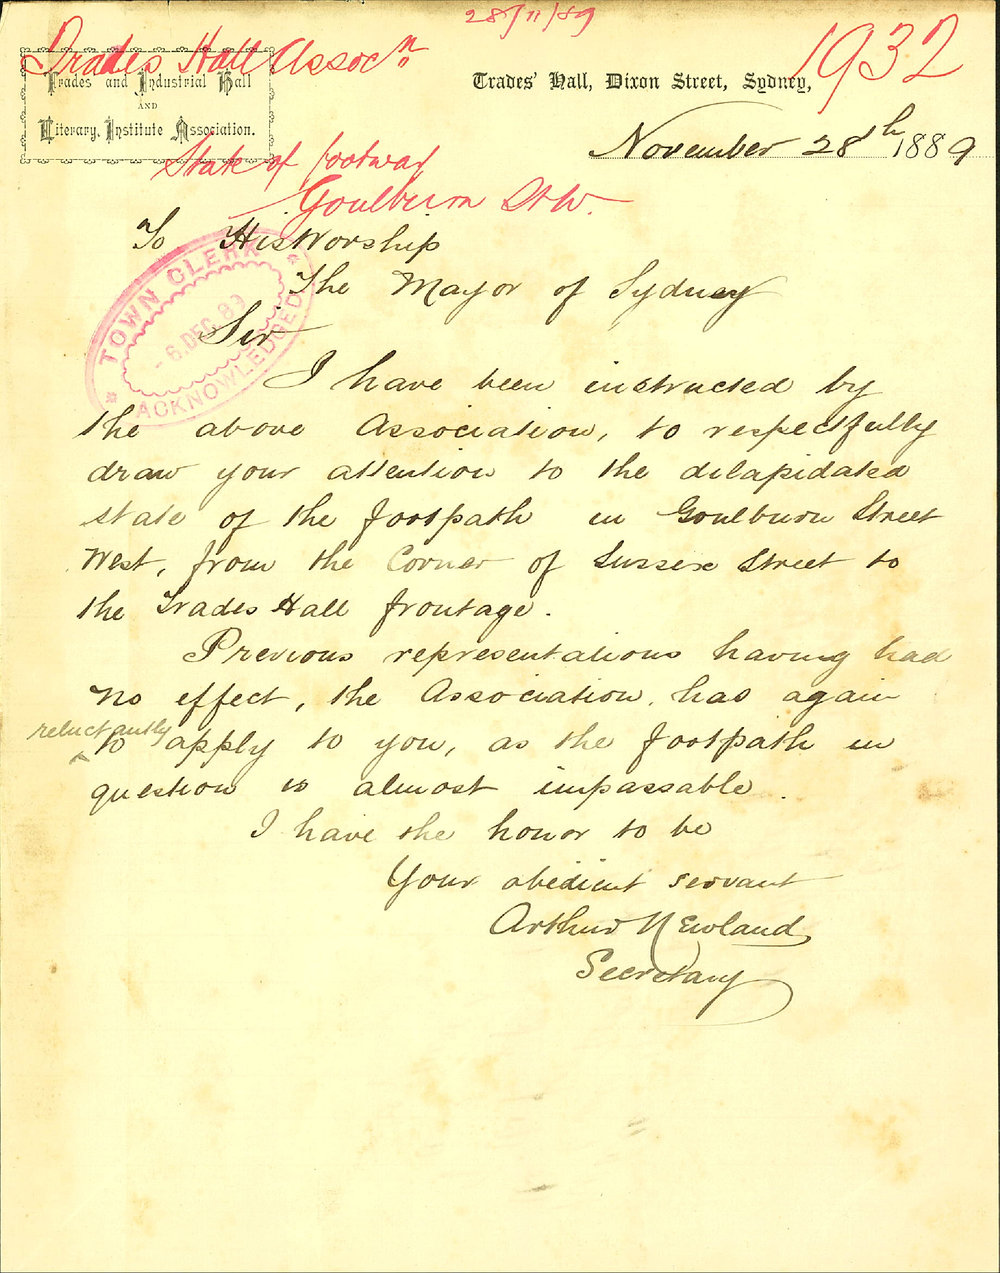 28/11/89
Trades Hall Assocn.
1932
Trades and Industrial Hall
AND
Literary Institute Association.
Trades' Hall, Dixon Street, Sydney,
November 28th 1889
State of footway
Goulburn St W.
To His Worship
The Mayor of Sydney
TOWN CLERK
- 6. DEC. 89
ACKNOWLEDGED
Sir
I have been instructed by
the above Association, to respectfully
draw your attention to the dilapidated
state of the footpath in Goulburn Street
West, from the Corner of Sussex Street to
the Trades Hall frontage.
Previous representations having had
no effect, the Association has again
reluctantly
to apply to you, as the footpath in
question is almost impassable.
I have the honor to be
Your obedient servant
Arthur Newland
Secretary